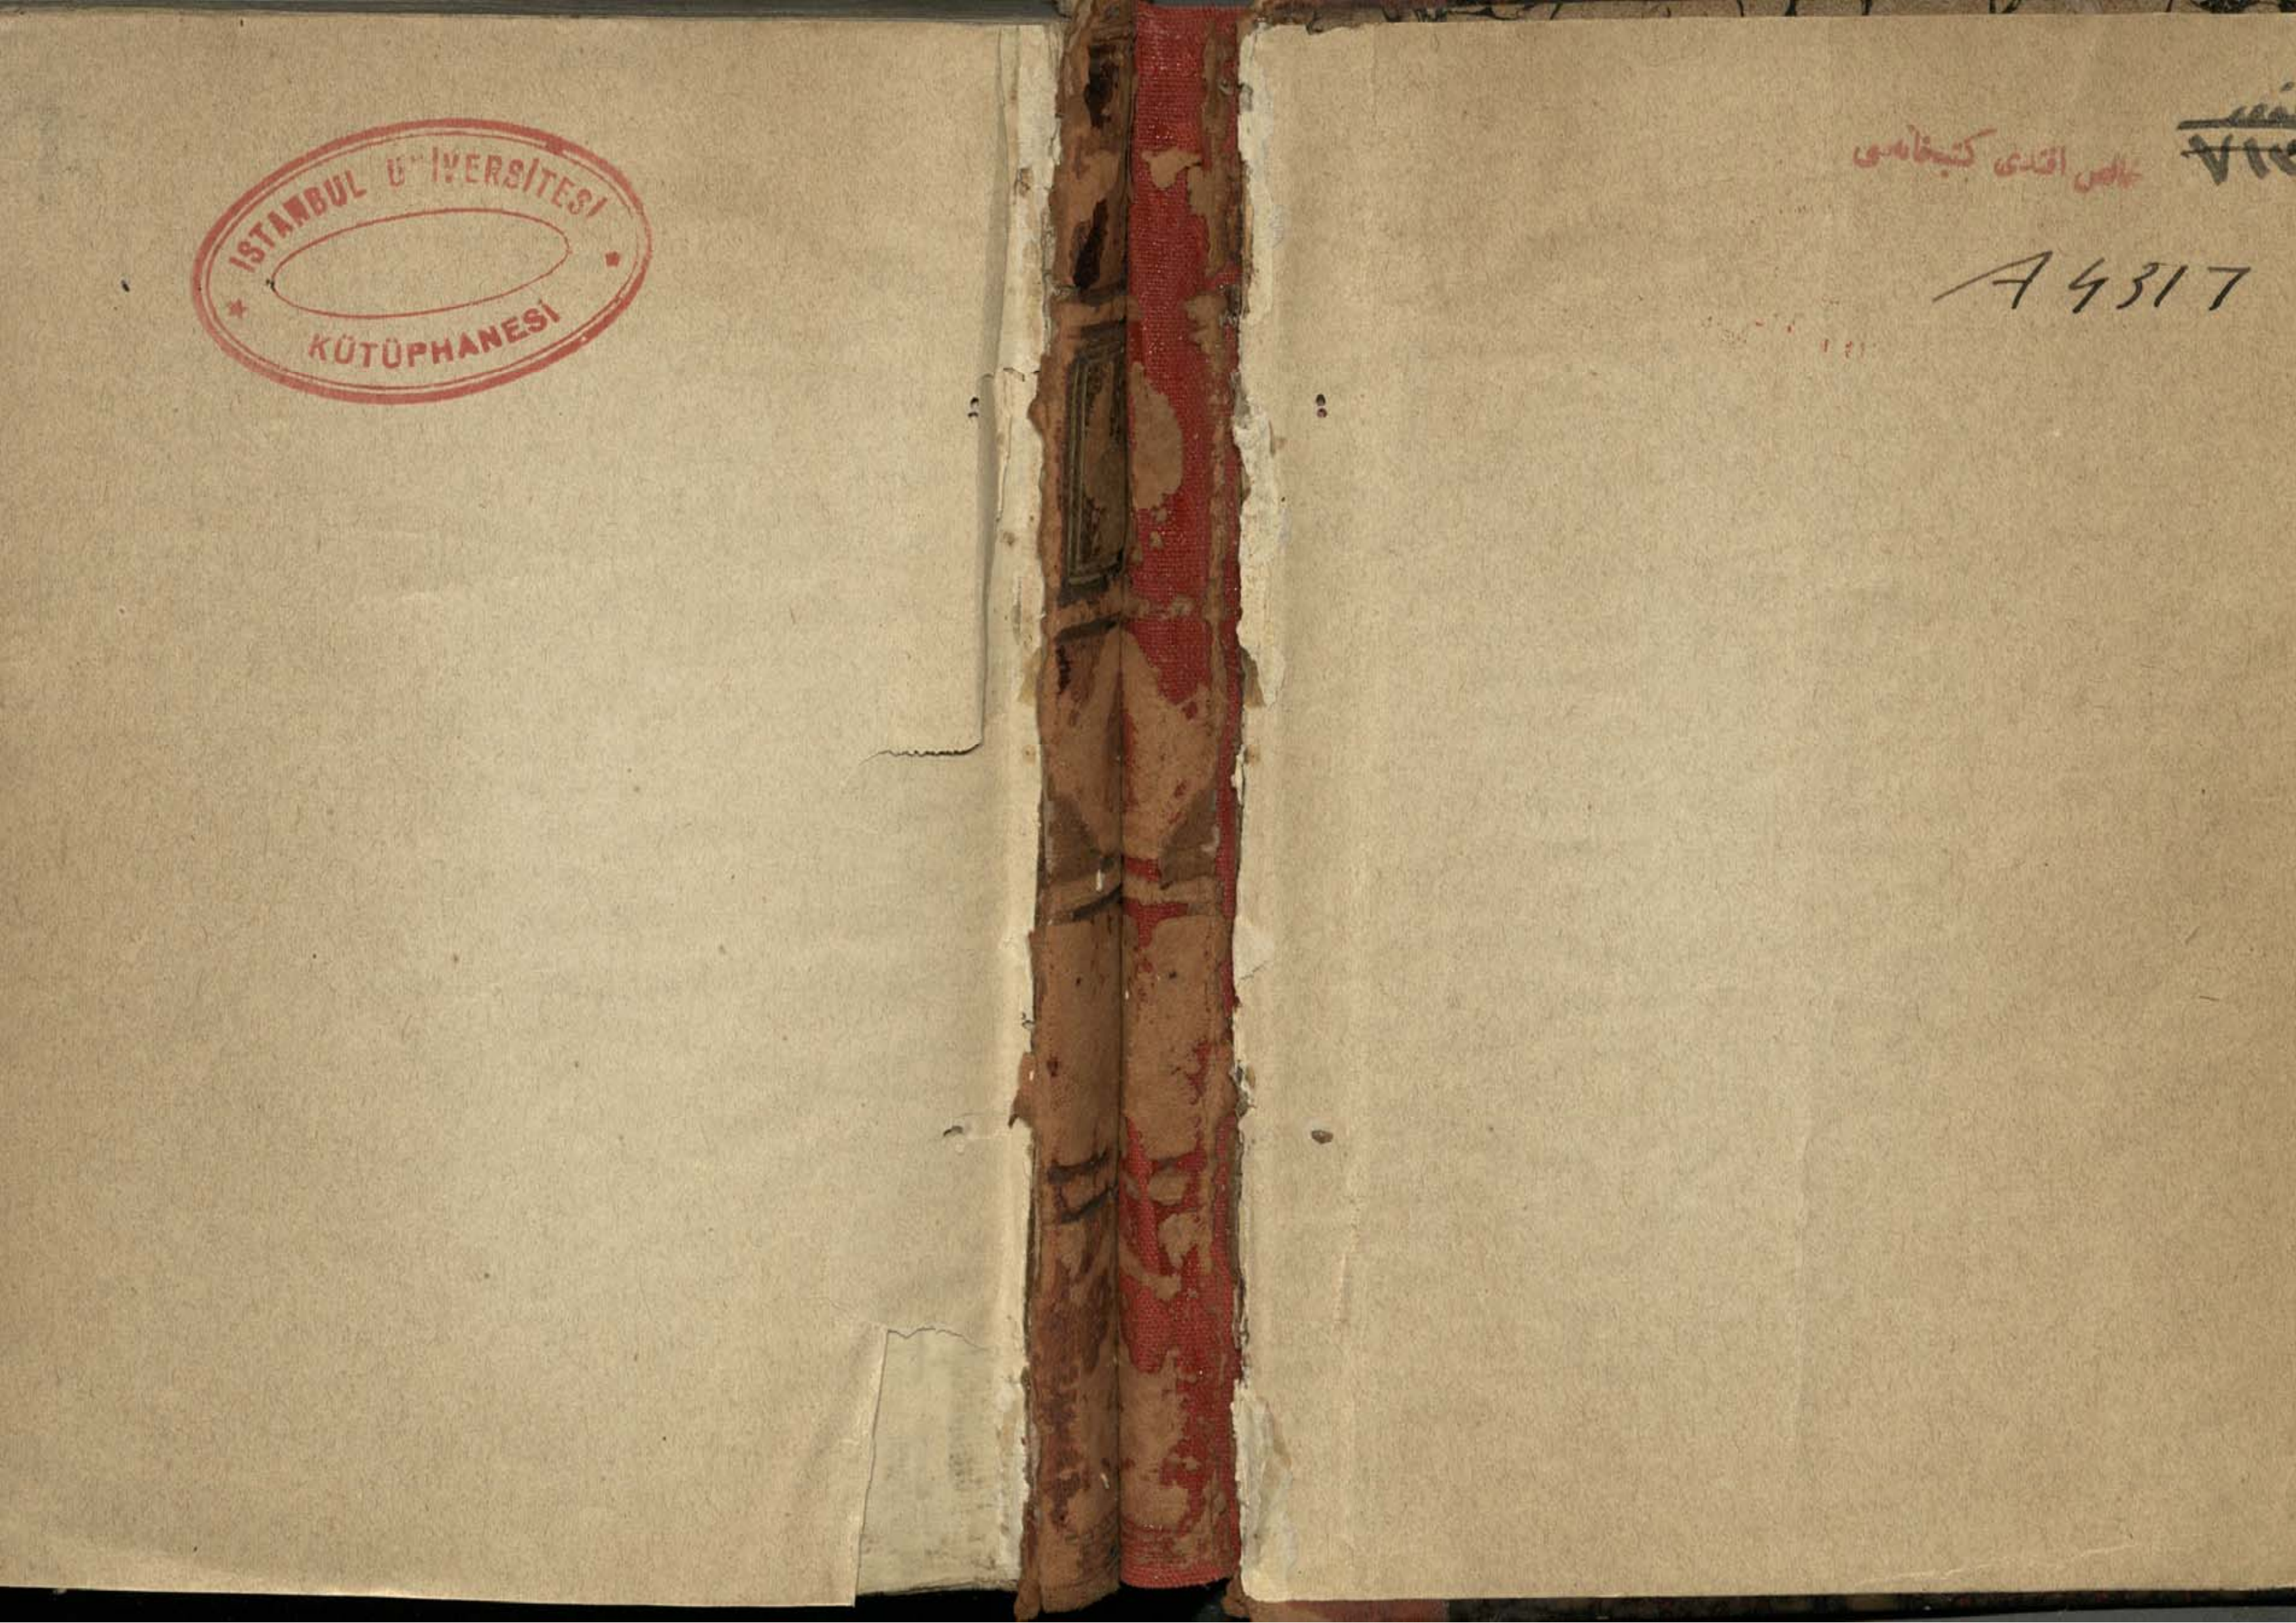 ISTANBUL ÜNİVERSİTESİ
KÜTÜPHANESİ
خالص افندی کتبخانه‌سی
A 4317